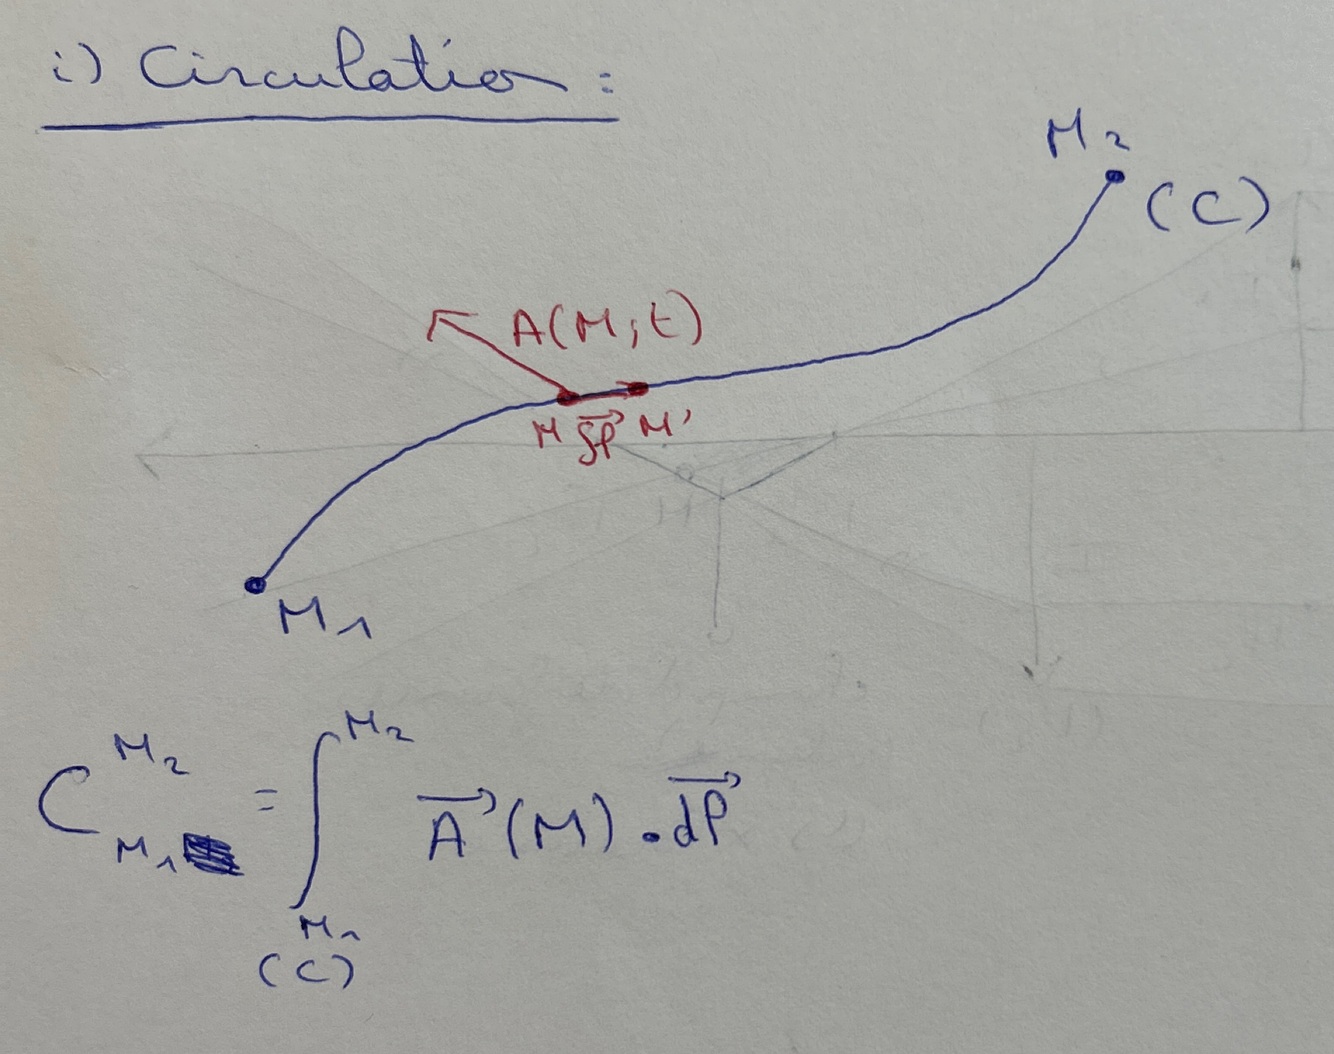 i) Circulation :
M₂
(C)
A(M;t)
M δl⃗ M'
M₁
C_{M₁}^{M₂} = ∫_{M₁ (C)}^{M₂} A⃗(M) . dl⃗